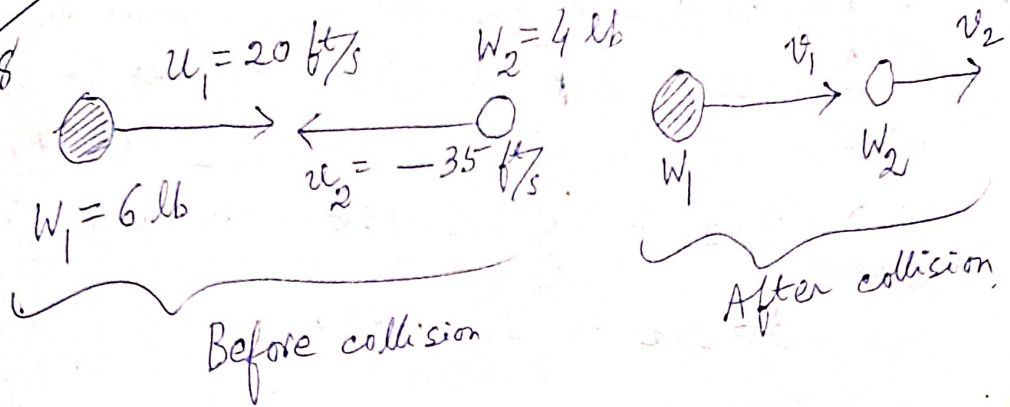 8
u₁ = 20 ft/s
W₂ = 4 lb
W₁ = 6 lb
u₂ = -35 ft/s.
Before collision
v₁
v₂
W₁
W₂
After collision.